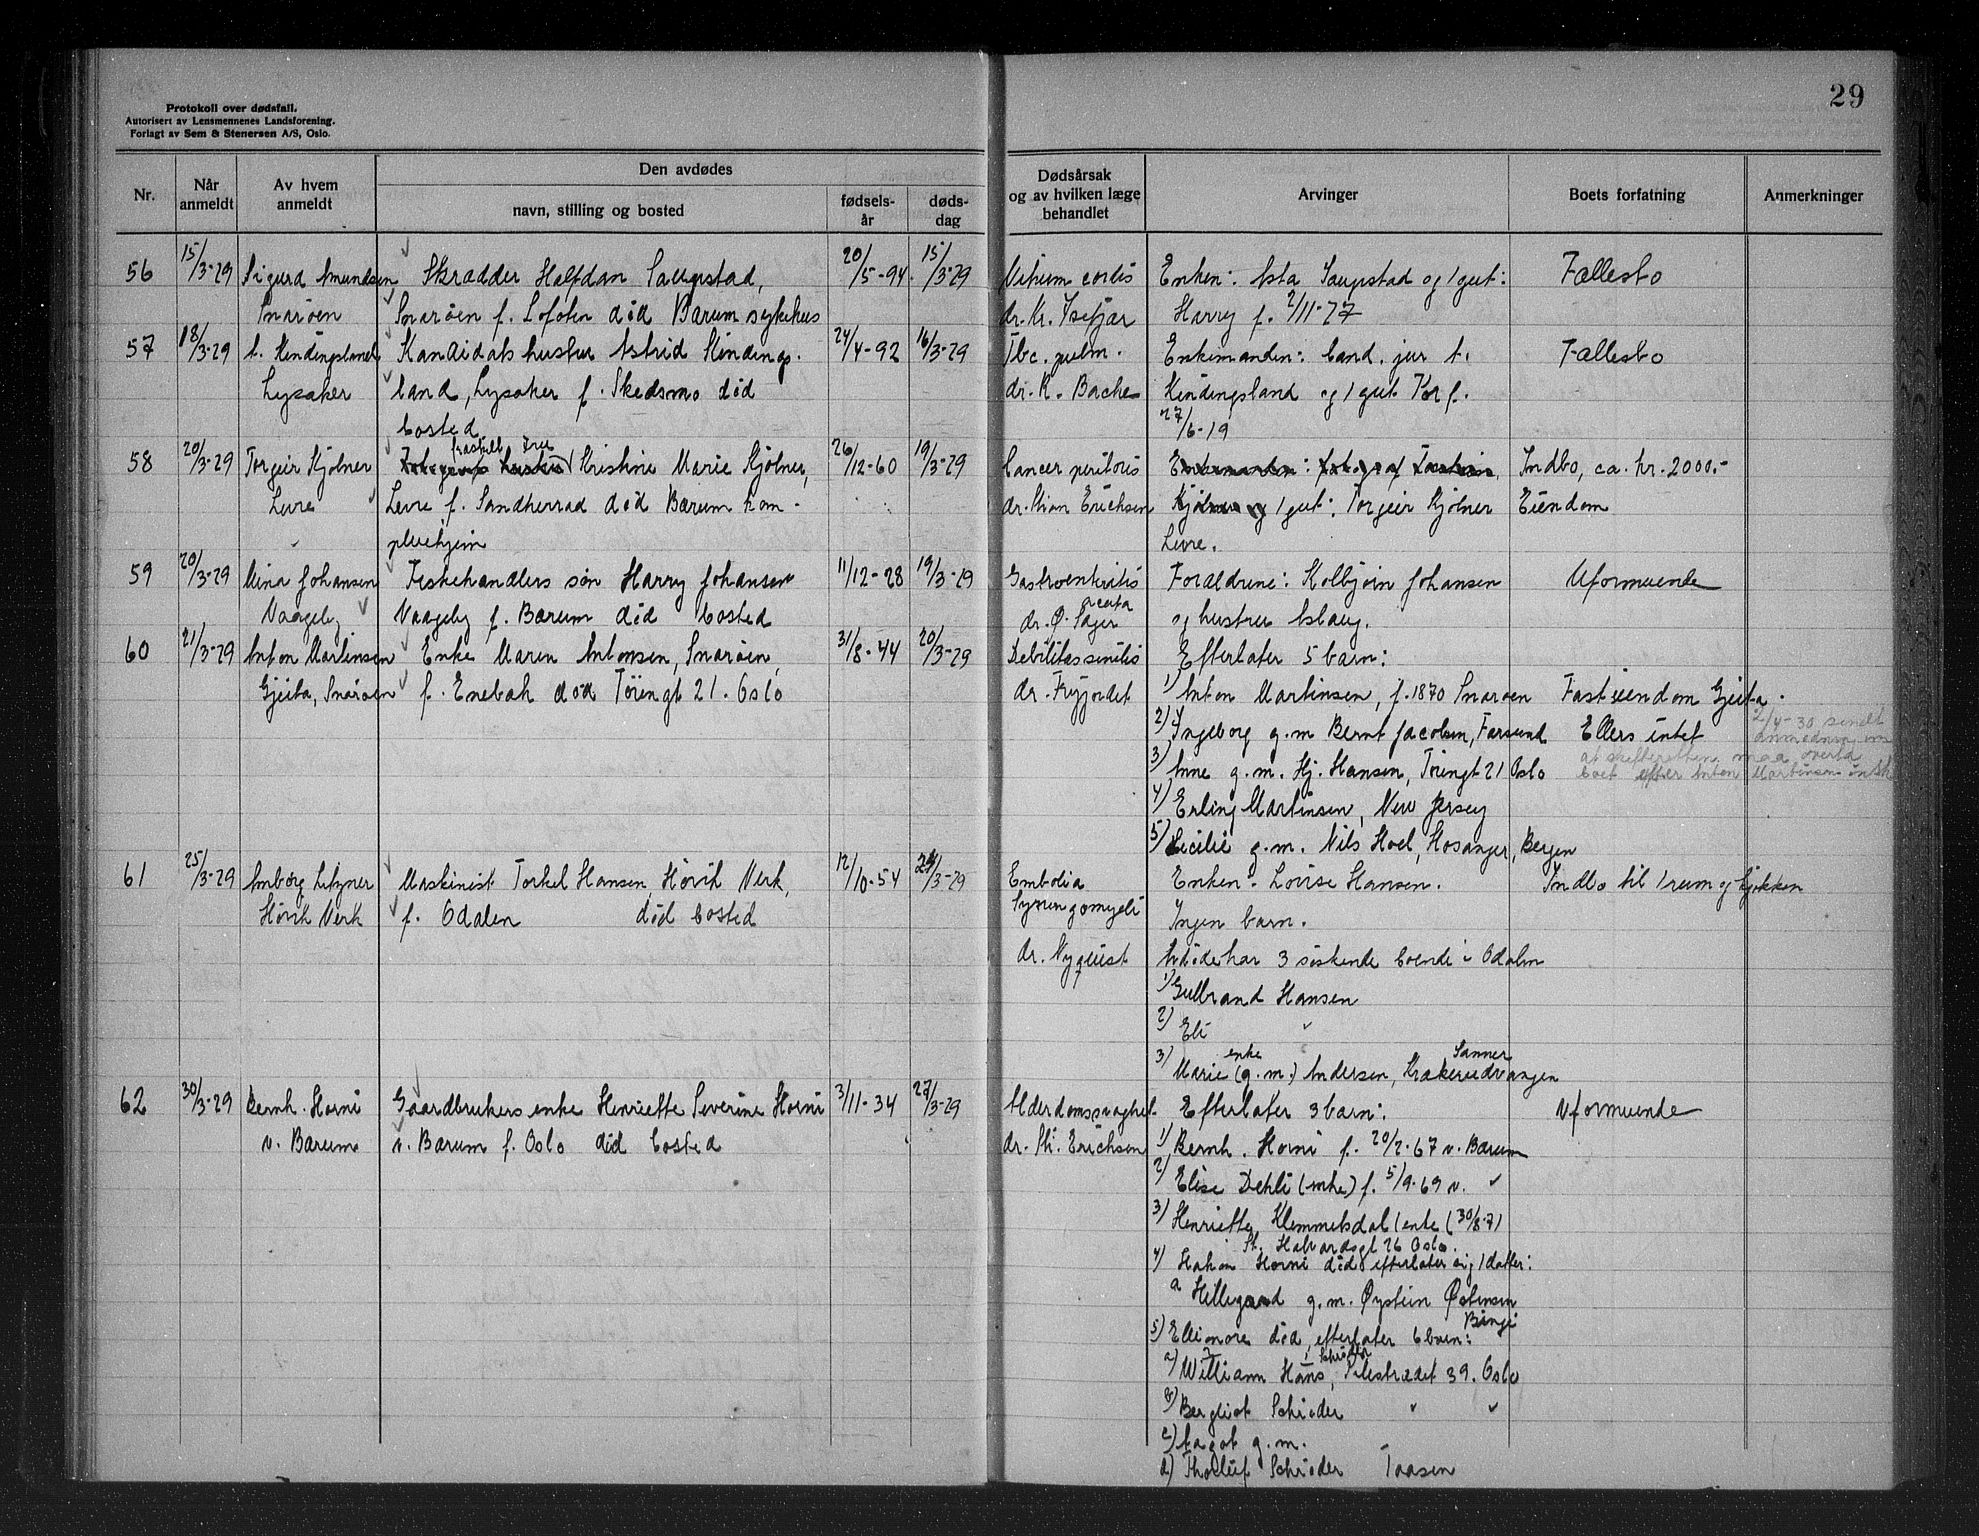 29
Protokoll over dødsfall.
Autorisert av Lensmennenes Landsforening.
Forlagt av Sem & Stenersen A/S, Oslo.
Nr.
Når anmeldt
Av hvem anmeldt
Den avdødes
navn, stilling og bosted
fødsels-år
døds-dag
Dødsårsak og av hvilken læge behandlet
Arvinger
Boets forfatning
Anmerkninger
56 15/3-29 Sigurd Amundsen Skrædder Halfdan Saupstad, 20/5-94. 15/3-29 cordis Enken: Asta Saupstad og 1 gut: Fællesbo
Snarøen Snarøen f. Lofoten död Bærum sykehus dr. Kr. Isefjær Harry f. 2/11-27
57 18/3-29 A. Kindingsland Kandidats hustru Astrid Kindings- 24/4-92 16/3-29 Tbc. pulm. Enkemanden: Cand. jur A. Fællesbo
Lysaker land, Lysaker f. Skedsmo död dr. K. Bache Kindingsland og 1 gut Tor f.
bosted 27/6-19
fraskilt Frue
58 20/3-29 Torgeir Kjølner Fotografs hustru Kristine Marie Kjølner, 26/12-60 19/3-29 Cancer peritoris Enkemanden: fotograf Indbo, ca. kr. 2000.-
Levre Levre f. Sandherred död Bærum kom- dr. Stian Erichsen Kjølner og 1 gut: Torgeir Kjølner Eiendom
pleiehjem Levre.
59 20/3-29 Mina Johansen Fiskehandlers søn Harry Johansen 11/12-28 19/3-29 Gastroenteritis Forældrene: Kolbjørn Johansen Uformuende
acuta
Vaageby Vaageby f. Bærum död bosted dr. Ø. Sager og hustru Aslaug.
60 21/3-29 Anton Martinsen Enke Maren Antonsen, Snarøen, 31/8-44 20/3-29 Debilitas senilis Efterlater 5 barn:
Gjeita, Snarøen f. Enebak död Töiengt 21. Oslo dr. Frøjordet 1) Anton Martinsen, f. 1870 Snarøen Fast eiendom Gjeita.
2) Ingeborg g.m. Bernt Jacobsen, Farsund Ellers intet 2/4-30 sendt
anmodning om
3) Anne g.m. Hj. Hansen, Töiengt 21 Oslo at skifteretten maa overta
boet efter Anton Martinsen
4) Erling Martinsen, New Jersey
5) Cecilie g.m. Nils Hoel, Hosanger, Bergen
61 25/3-29 Amborg Litzner Maskinist Torkel Hansen Høvik Verk, 12/10-54 24/3-29 Embolia Enken: Lovise Hansen. Indbo til 1 rum og kjøkken
Høvik Verk f. Odalen död bosted Syringomyeli Ingen barn.
dr. Nyquist Avdöde har 3 söskende boende i Odalen
1) Gulbrand Hansen
2) Eli "
enke Sanner
3) Marie (g.m.) Andersen, Krakerudvangen
62 30/3-29 Bernh. Horni Gaardbrukers enke Henriette Severine Horni 3/11-34 27/3-29 Alderdomssvaghet Efterlater 3 barn: Uformuende
v. Bærum v. Bærum f. Oslo död bosted dr. St. Erichsen 1) Bernh. Horni f. 20/2-67 v. Bærum
2) Elise Dehli (enke) f. 5/9-69 v. "
3) Henriette Klemmetsdal (enke (30/8-71)
St. Halvardsgt 26 Oslo.
4) Hakon Horni död efterlater sig 1 datter:
a Hillegard g.m. Øystein Østensen
Binge
5) Elionore död, efterlater 6 barn:
Schrøder
a) William Hans, Pilestrædet 39. Oslo
b) Bergliot Schrøder " "
c) Aagot g.m.
d) Thorleif Schrøder Taasen